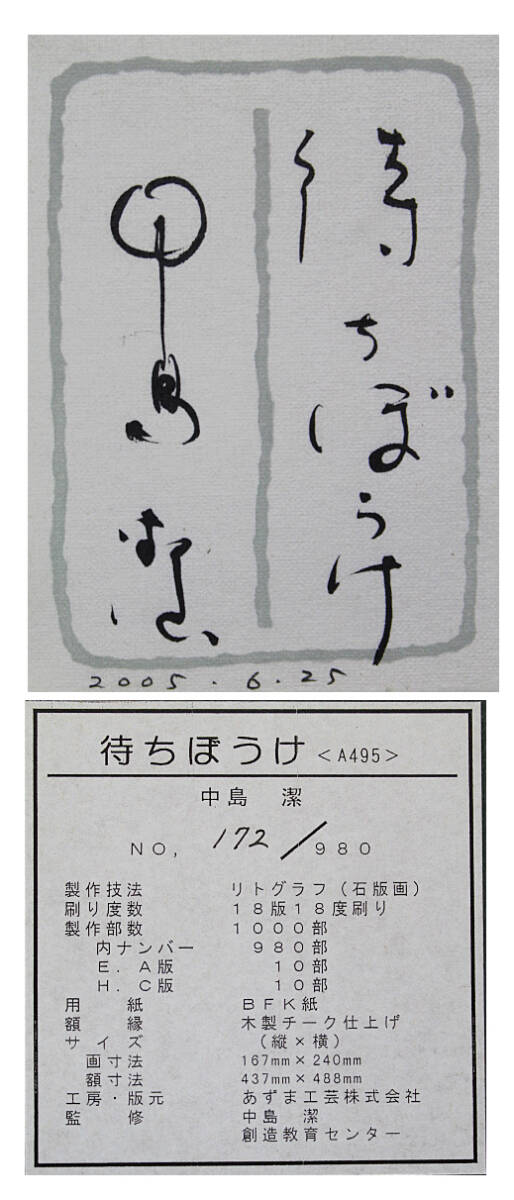 待ちぼうけ
中島潔
2005.6.25
待ちぼうけ <A495>
中島 潔
NO, 172/980
製作技法 リトグラフ(石版画)
刷り度数 18版18度刷り
製作部数 1000部
内ナンバー 980部
E.A版 10部
H.C版 10部
用紙 BFK紙
額縁 木製チーク仕上げ
サイズ (縦×横)
画寸法 167mm×240mm
額寸法 437mm×488mm
工房・版元 あずま工芸株式会社
監修 中島 潔
創造教育センター